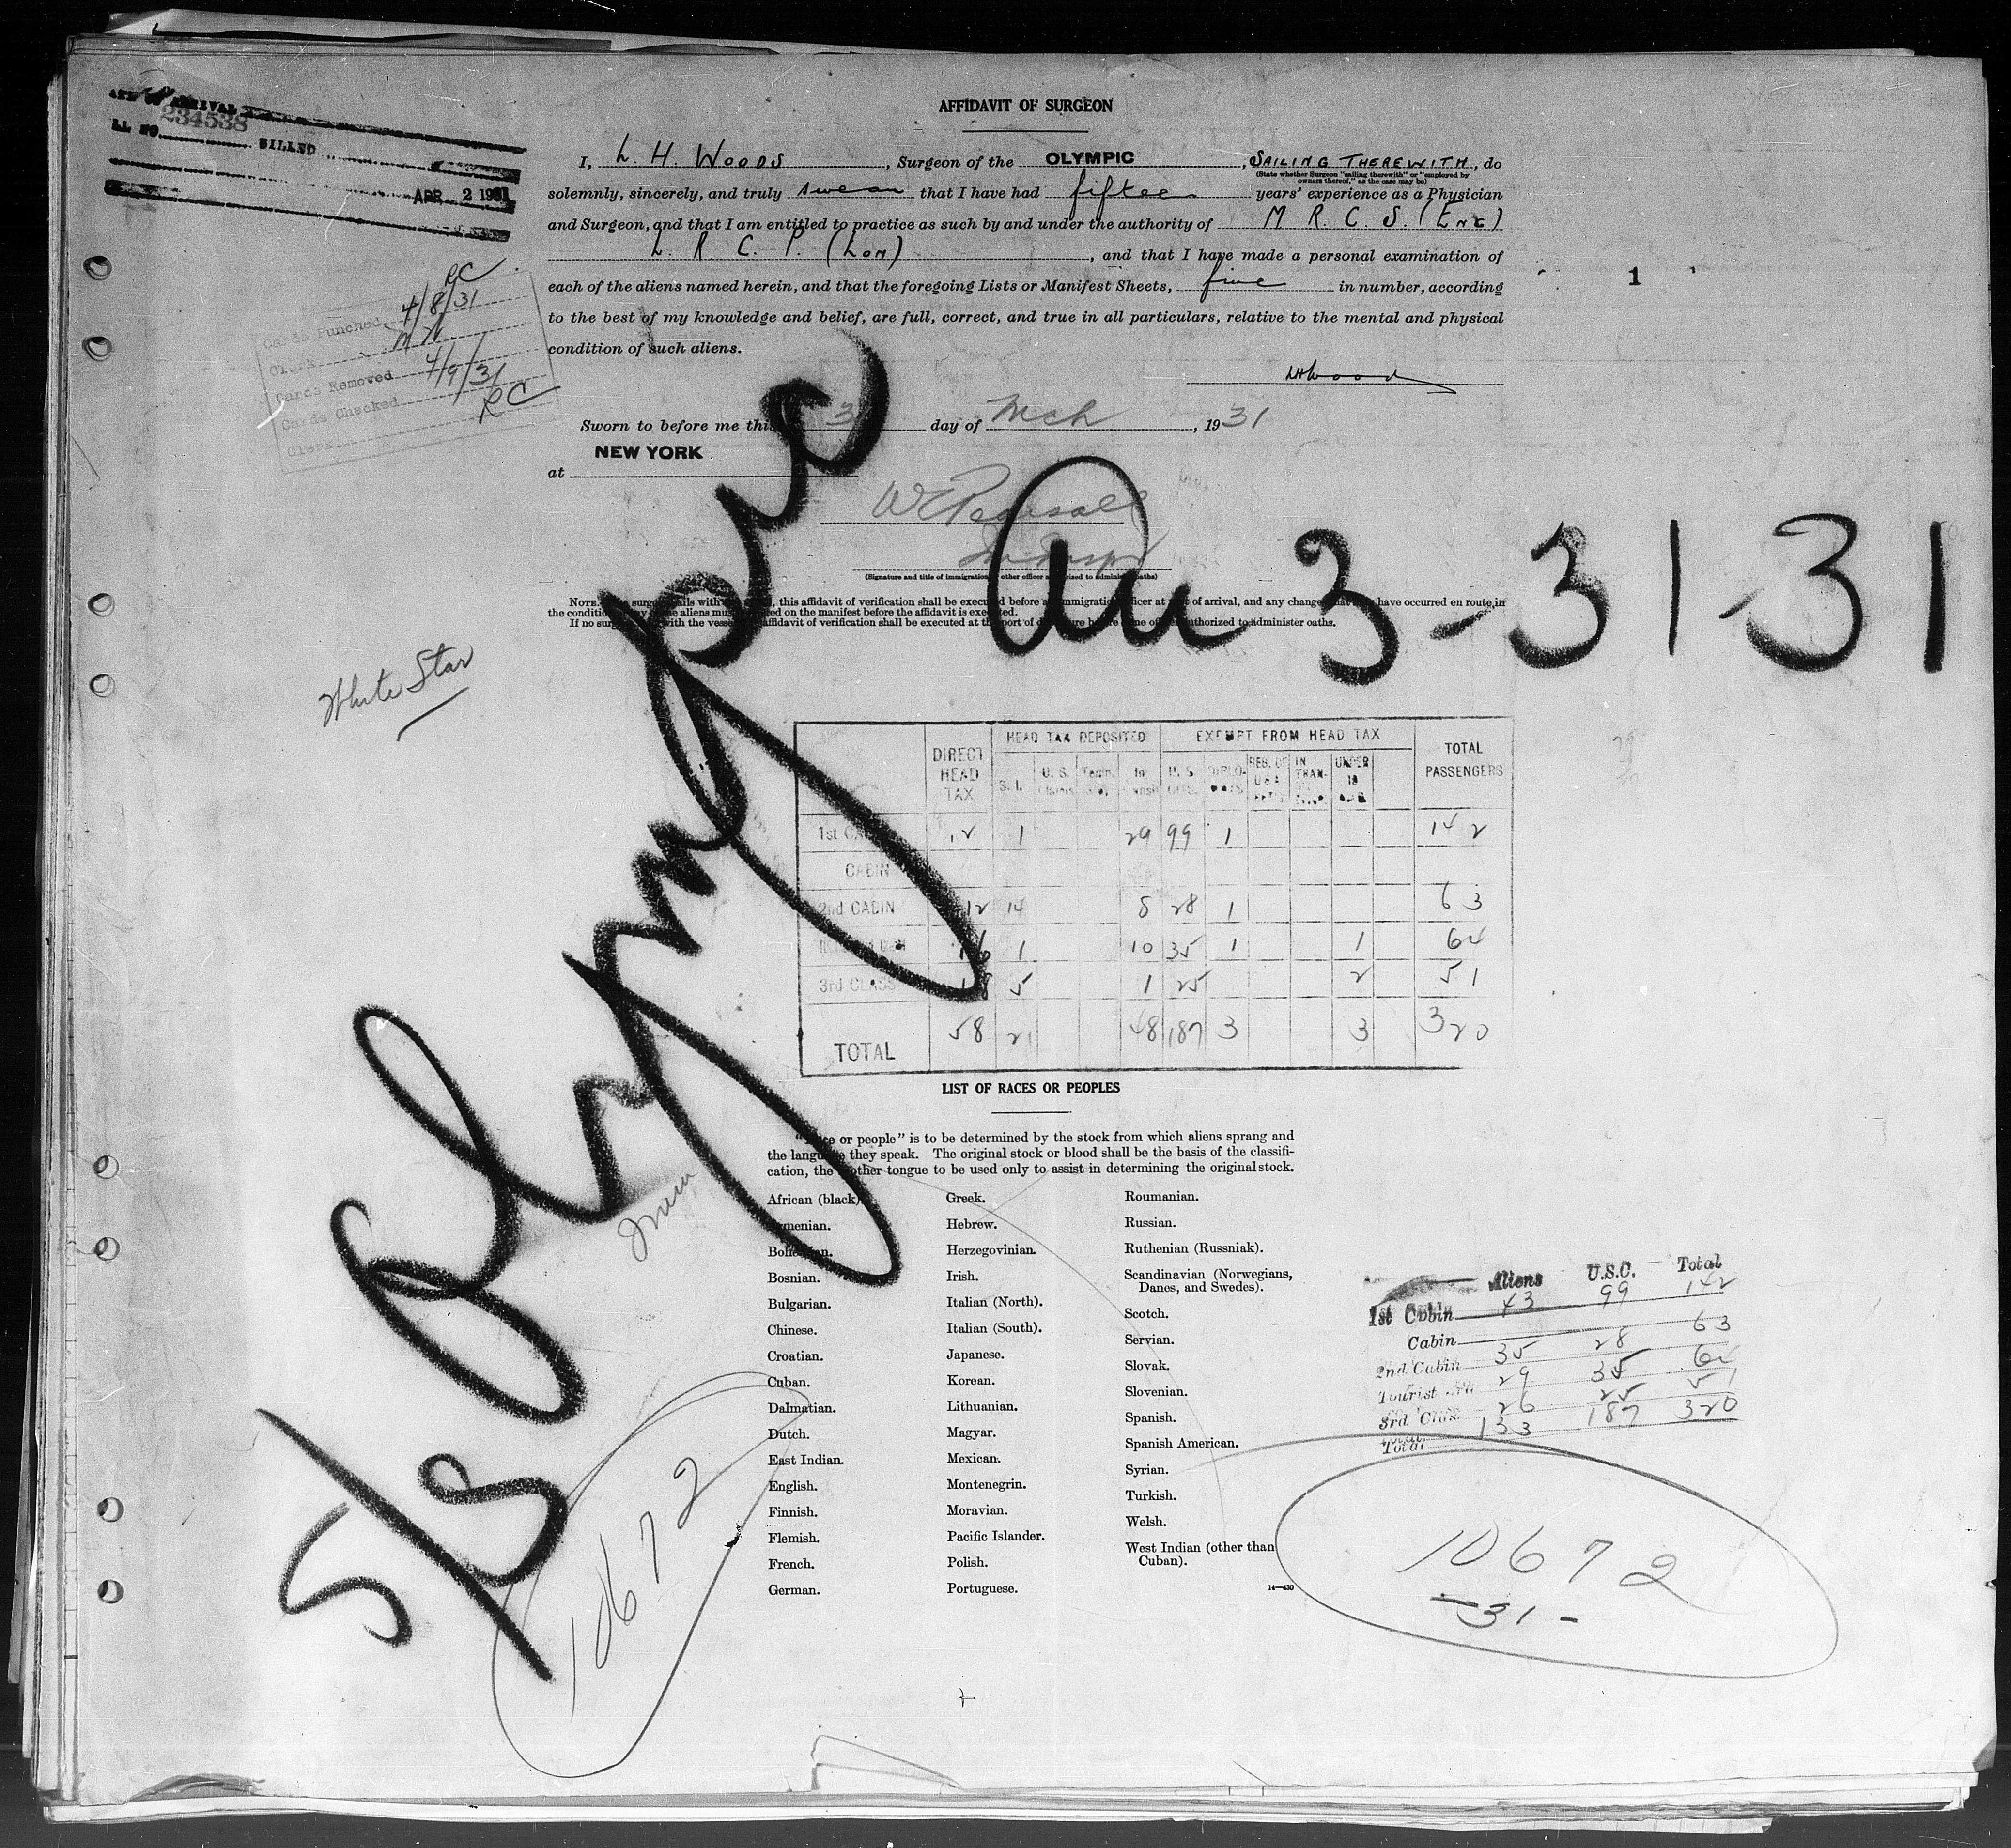 AFFIDAVIT OF SURGEON
ARRIVAL
234538
BILLED
APR 2 1931
I, L. H. WOODS, Surgeon of the OLYMPIC, SAILING THEREWITH, do
(State whether Surgeon "sailing therewith" or "employed by
owners thereof," as the case may be)
solemnly, sincerely, and truly swear that I have had fifteen years' experience as a Physician
and Surgeon, and that I am entitled to practice as such by and under the authority of M R. C. S. (Eng)
L. R. C. P. (Lon), and that I have made a personal examination of
each of the aliens named herein, and that the foregoing Lists or Manifest Sheets, five in number, according
to the best of my knowledge and belief, are full, correct, and true in all particulars, relative to the mental and physical
condition of such aliens.
1
RC
Cards Punched 4/8/31
Clerk
Cards Removed 4/9/31
Cards Checked RC
Clerk
LHWoods
Sworn to before me this day of Mch, 1931
at NEW YORK
W Pearsall
(Signature and title of immigration other officer authorized to administer oaths)
S/S Olympic
Au 3-31-31
NOTE. surgeon sails with , this affidavit of verification shall be executed before an immigration officer at port of arrival, and any change that may have occurred en route, in
the condition any aliens must be noted on the manifest before the affidavit is executed.
If no surgeon with the vessel affidavit of verification shall be executed at the port of departure before one officer authorized to administer oaths.
White Star
DIRECT HEAD TAX
HEAD TAX DEPOSITED
EXEMPT FROM HEAD TAX
TOTAL PASSENGERS
S. I. U. S. Temp. In U. S. DIPLO- RES. OF IN TRAN- UNDER 16
1st CABIN 12 1 29 99 1 142
CABIN
2nd CABIN 12 14 8 28 1 63
16 1 10 35 1 1 64
3rd CLASS 18 5 1 25 2 51
TOTAL 58 21 48 187 3 3 320
LIST OF RACES OR PEOPLES
"Race or people" is to be determined by the stock from which aliens sprang and
the language they speak. The original stock or blood shall be the basis of the classifi-
cation, the mother tongue to be used only to assist in determining the original stock.
African (black).
Armenian.
Bohemian.
Bosnian.
Bulgarian.
Chinese.
Croatian.
Cuban.
Dalmatian.
Dutch.
East Indian.
English.
Finnish.
Flemish.
French.
German.
Greek.
Hebrew.
Herzegovinian.
Irish.
Italian (North).
Italian (South).
Japanese.
Korean.
Lithuanian.
Magyar.
Mexican.
Montenegrin.
Moravian.
Pacific Islander.
Polish.
Portuguese.
Roumanian.
Russian.
Ruthenian (Russniak).
Scandinavian (Norwegians,
Danes, and Swedes).
Scotch.
Servian.
Slovak.
Slovenian.
Spanish.
Spanish American.
Syrian.
Turkish.
Welsh.
West Indian (other than
Cuban).
14-430
Aliens U.S.C. Total
1st Cabin 43 99 142
Cabin
2nd Cabin 35 28 63
Tourist 29 35 64
3rd Class 26 25 51
Total 133 187 320
10672
10672
-31-